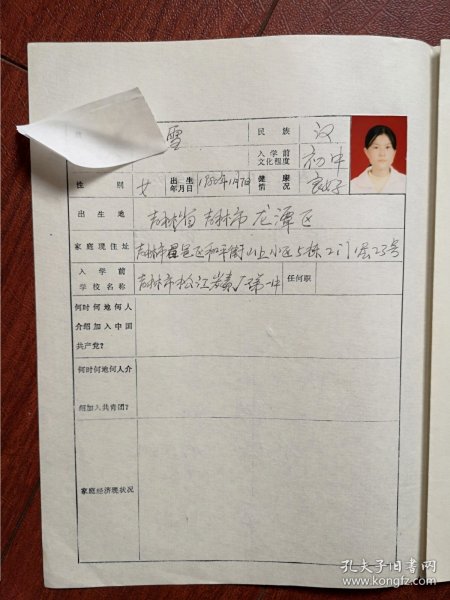 雪 民族 汉
入学前文化程度 初中
性别 女 出生年月日 健康情况 良好
出生地 吉林省吉林市龙潭区
家庭现住址 吉林市昌邑区和平街山上小区5栋2门1层23号
入学前学校名称 吉林市松江 第一中 任何职
何时何地何人
介绍加入中国
共产党？
何时何地何人介
绍加入共青团？
家庭经济现状况
孔夫子旧书网
www.kongfz.com